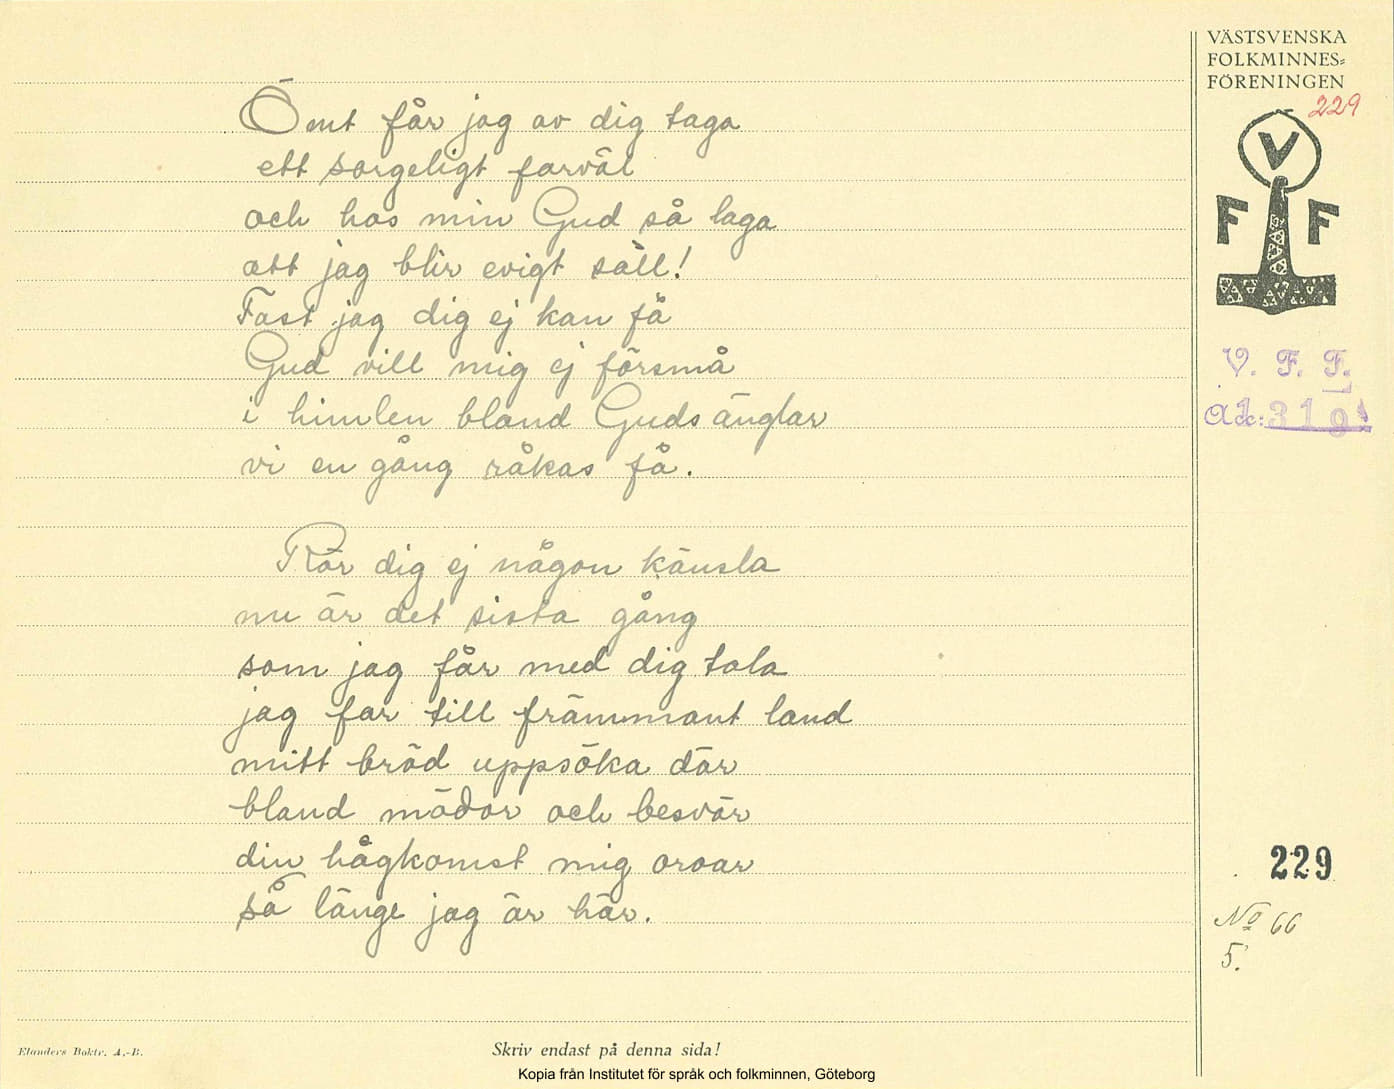 VÄSTSVENSKA
FOLKMINNES=
FÖRENINGEN
229
V
F F
V. F. F.
Acc: 1319
Ömt får jag av dig taga
ett sorgeligt farväl
och hos min Gud så laga
att jag blir evigt säll!
Fast jag dig ej kan få
Gud vill mig ej försmå
i himlen bland Guds änglar
vi en gång råkas få.
Rör dig ej någon känsla
nu är det sista gång
som jag får med dig tala
jag far till främmant land
mitt bröd uppsöka där
bland mödor och besvär
din hågkomst mig oroar
så länge jag är här.
229
No 66
5.
Elanders Boktr. A.-B.
Skriv endast på denna sida!
Kopia från Institutet för språk och folkminnen, Göteborg